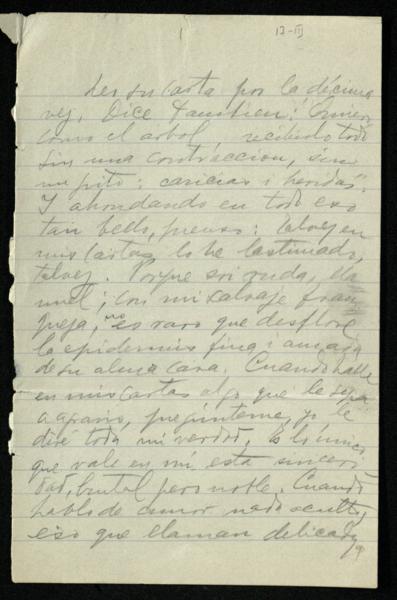 1
17-III
Leo su carta por la décima
vez. Dice también: "Quiero
como el árbol recibirlo todo
sin una contracción, sin
un grito: caricias i heridas".
Y ahondando en todo eso
tan bello, pienso: Talvez en
mis cartas lo he lastimado,
talvez. Porque soi ruda,
cruel; con mi salvaje fran
queza, no es raro que desflore
la epidermis fina i amada
de su alma cara. Cuando halle
en mis cartas algo que le sepa
a agravio, pregúnteme, yo le
diré toda mi verdad. Es lo único
que vale en mí, esta sinceri
dad, brutal pero noble. Cuando
hablo de amor nada oculto,
eso que llaman delicadeza